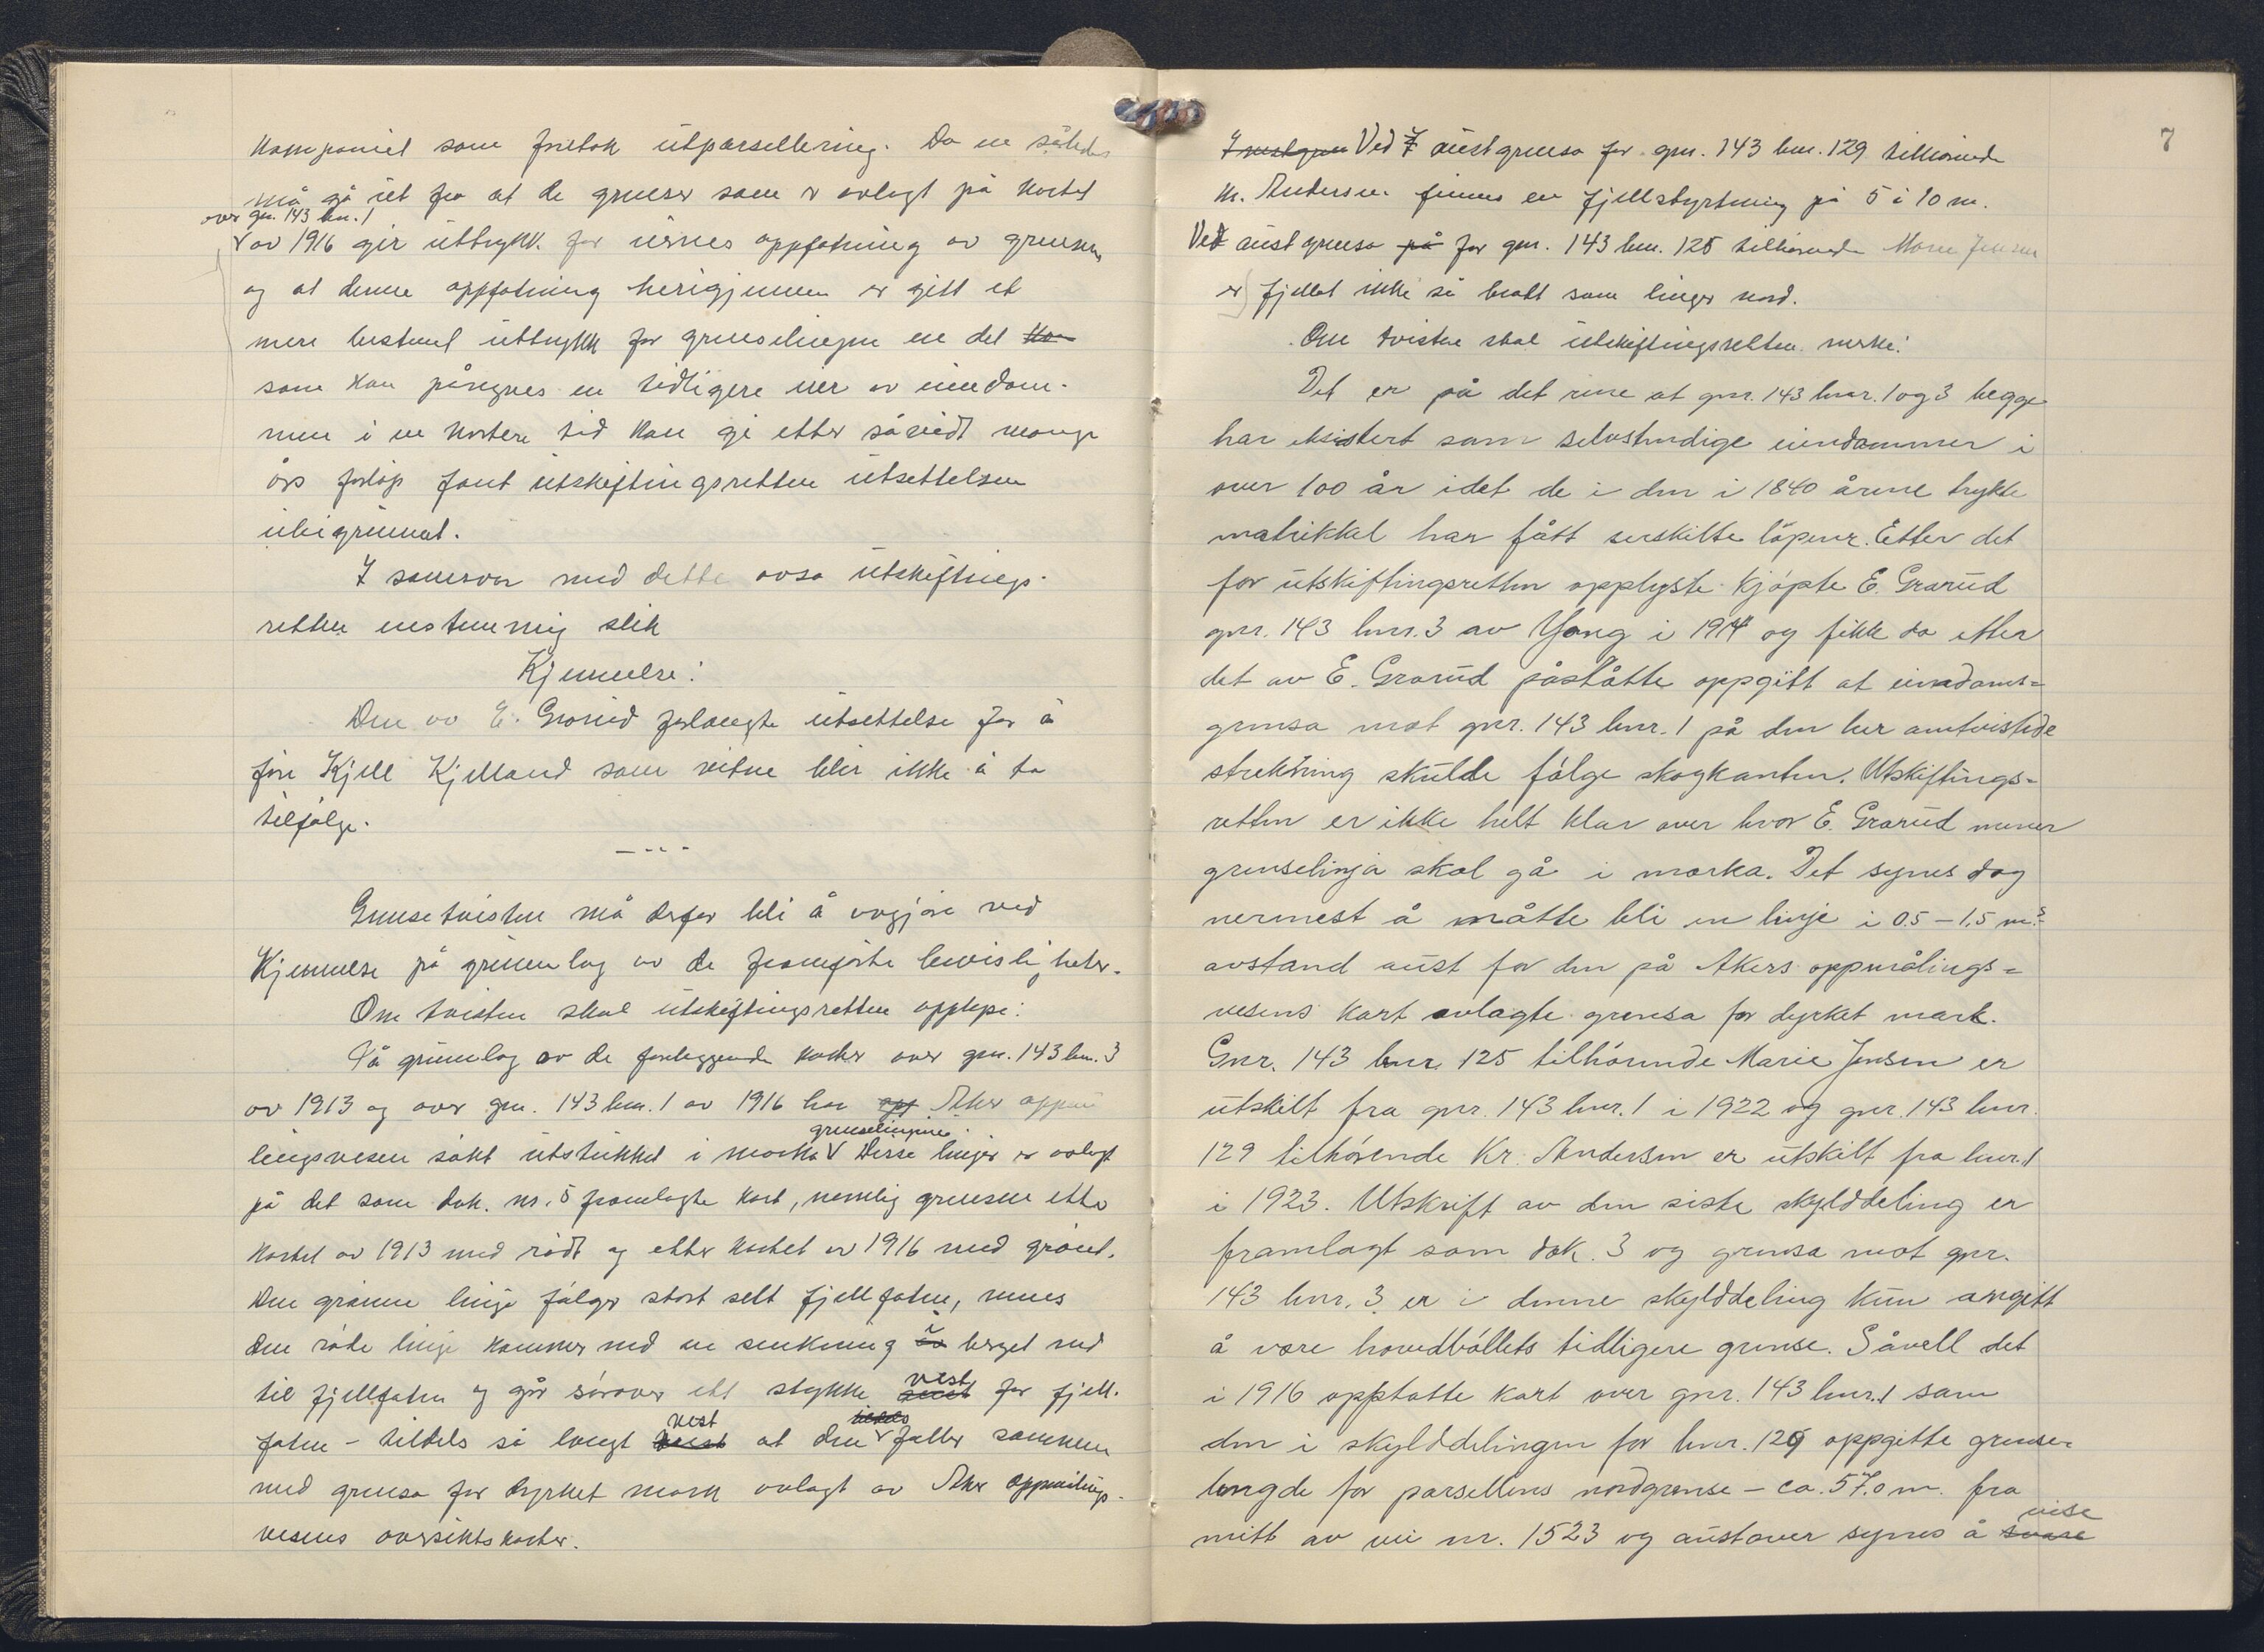 kompaniet som foretok utparsellering. Da en således
må gå ut fra at de grenser som er avlagt på kartet
over gnr. 143 bnr. 1
av 1916 gir uttrykk for eiernes oppfatning av grensen
og at denne oppfatning herigjennem er gitt et
mere bestemt uttrykk for grenselinjen en det
som kan påregnes en tidligere eier av eiendom-
men i en kortere tid kan gi etter såvidt mange
års forløp fant utskiftingsretten utsettelsen
ubegrunnet.
I samsvar med dette avsa utskiftings-
retten enstemmig slik
Kjennelse:
Den av E. Grorud forlangte utsettelse for å
føre Kjell Kjelland som vitne blir ikke å ta
tilfølge.
Grensetvisten må derfor bli å avgjøre ved
Kjennelse på grunnlag av de framførte bevisligheter.
Om tvisten skal utskiftingsretten opplyse:
På grunnlag av de foreliggende karter over gnr. 143 bnr. 3
av 1913 og over gnr. 143 bnr. 1 av 1916 har opp Aker oppmå
grenselinjene.
lingsvesen søkt utstukket i marka Disse linjer er avlagt
på det som dok. nr. 5 framlagte kart, nemlig grensene etter
kartet av 1913 med rødt og etter kartet av 1916 med grønt.
Den grønne linje følger stort sett fjellfoten, mens
den røde linje kommer ned en senkning i berget ned
vest
til fjellfoten og går sørover ett stykke for fjell-
vest
foten - tildels så langt at den faller sammen
med grensa for dyrket mark avlagt av Aker oppmålings-
vesens oversiktskarter.
7
Ved austgrensa for gnr. 143 bnr. 129 tilhørende
Kr. Andersen finnes en fjellstyrtning på 5 à 10 m.
Ved austgrensa på for gnr. 143 bnr. 125 tilhørende Marie Jensen
er fjellet ikke så bratt som lenger nord.
Om tvisten skal utskiftingsretten merke:
Det er på det rene at gnr. 143 bnr. 1 og 3 begge
har eksistert som selvstendige eiendommer i
over 100 år idet de i den i 1840 årene trykte
matrikkel har fått serskilte løpenr. Etter det
for utskiftingsretten opplyste kjøpte E. Grorud
gnr. 143 bnr. 3 av Yong i 1914 og fikk da etter
det av E. Grorud påståtte oppgitt at eiendoms=
grensa mot gnr. 143 bnr. 1 på den her omtvistede
strekning skulde følge skogkanten. Utskiftings=
retten er ikke helt klar over hvor E. Grorud mener
grenselinja skal gå i marka. Det synes dog
nermest å måtte bli en linje i 0.5 – 1.5 m's
avstand aust for den på Akers oppmålings=
vesens kart avlagte grensa for dyrket mark.
Gnr. 143 bnr. 125 tilhørende Marie Jensen er
utskilt fra gnr. 143 bnr. 1 i 1922 og gnr. 143 bnr.
129 tilhørende Kr. Andersen er utskilt fra bnr. 1
i 1923. Utskrift av den siste skylddeling er
framlagt som dok. 3 og grensa mot gnr.
143 bnr. 3 er i denne skylddeling kun angitt
å være hovedbøllets tidligere grense. Såvell det
i 1916 opptatte kart over gnr. 143 bnr. 1 som
den i skylddelingen for bnr. 129 oppgitte grense-
lengde for parsellens nordgrense – ca. 57.0 m. fra
vise
mitt av vei nr. 1523 og austover synes å svare